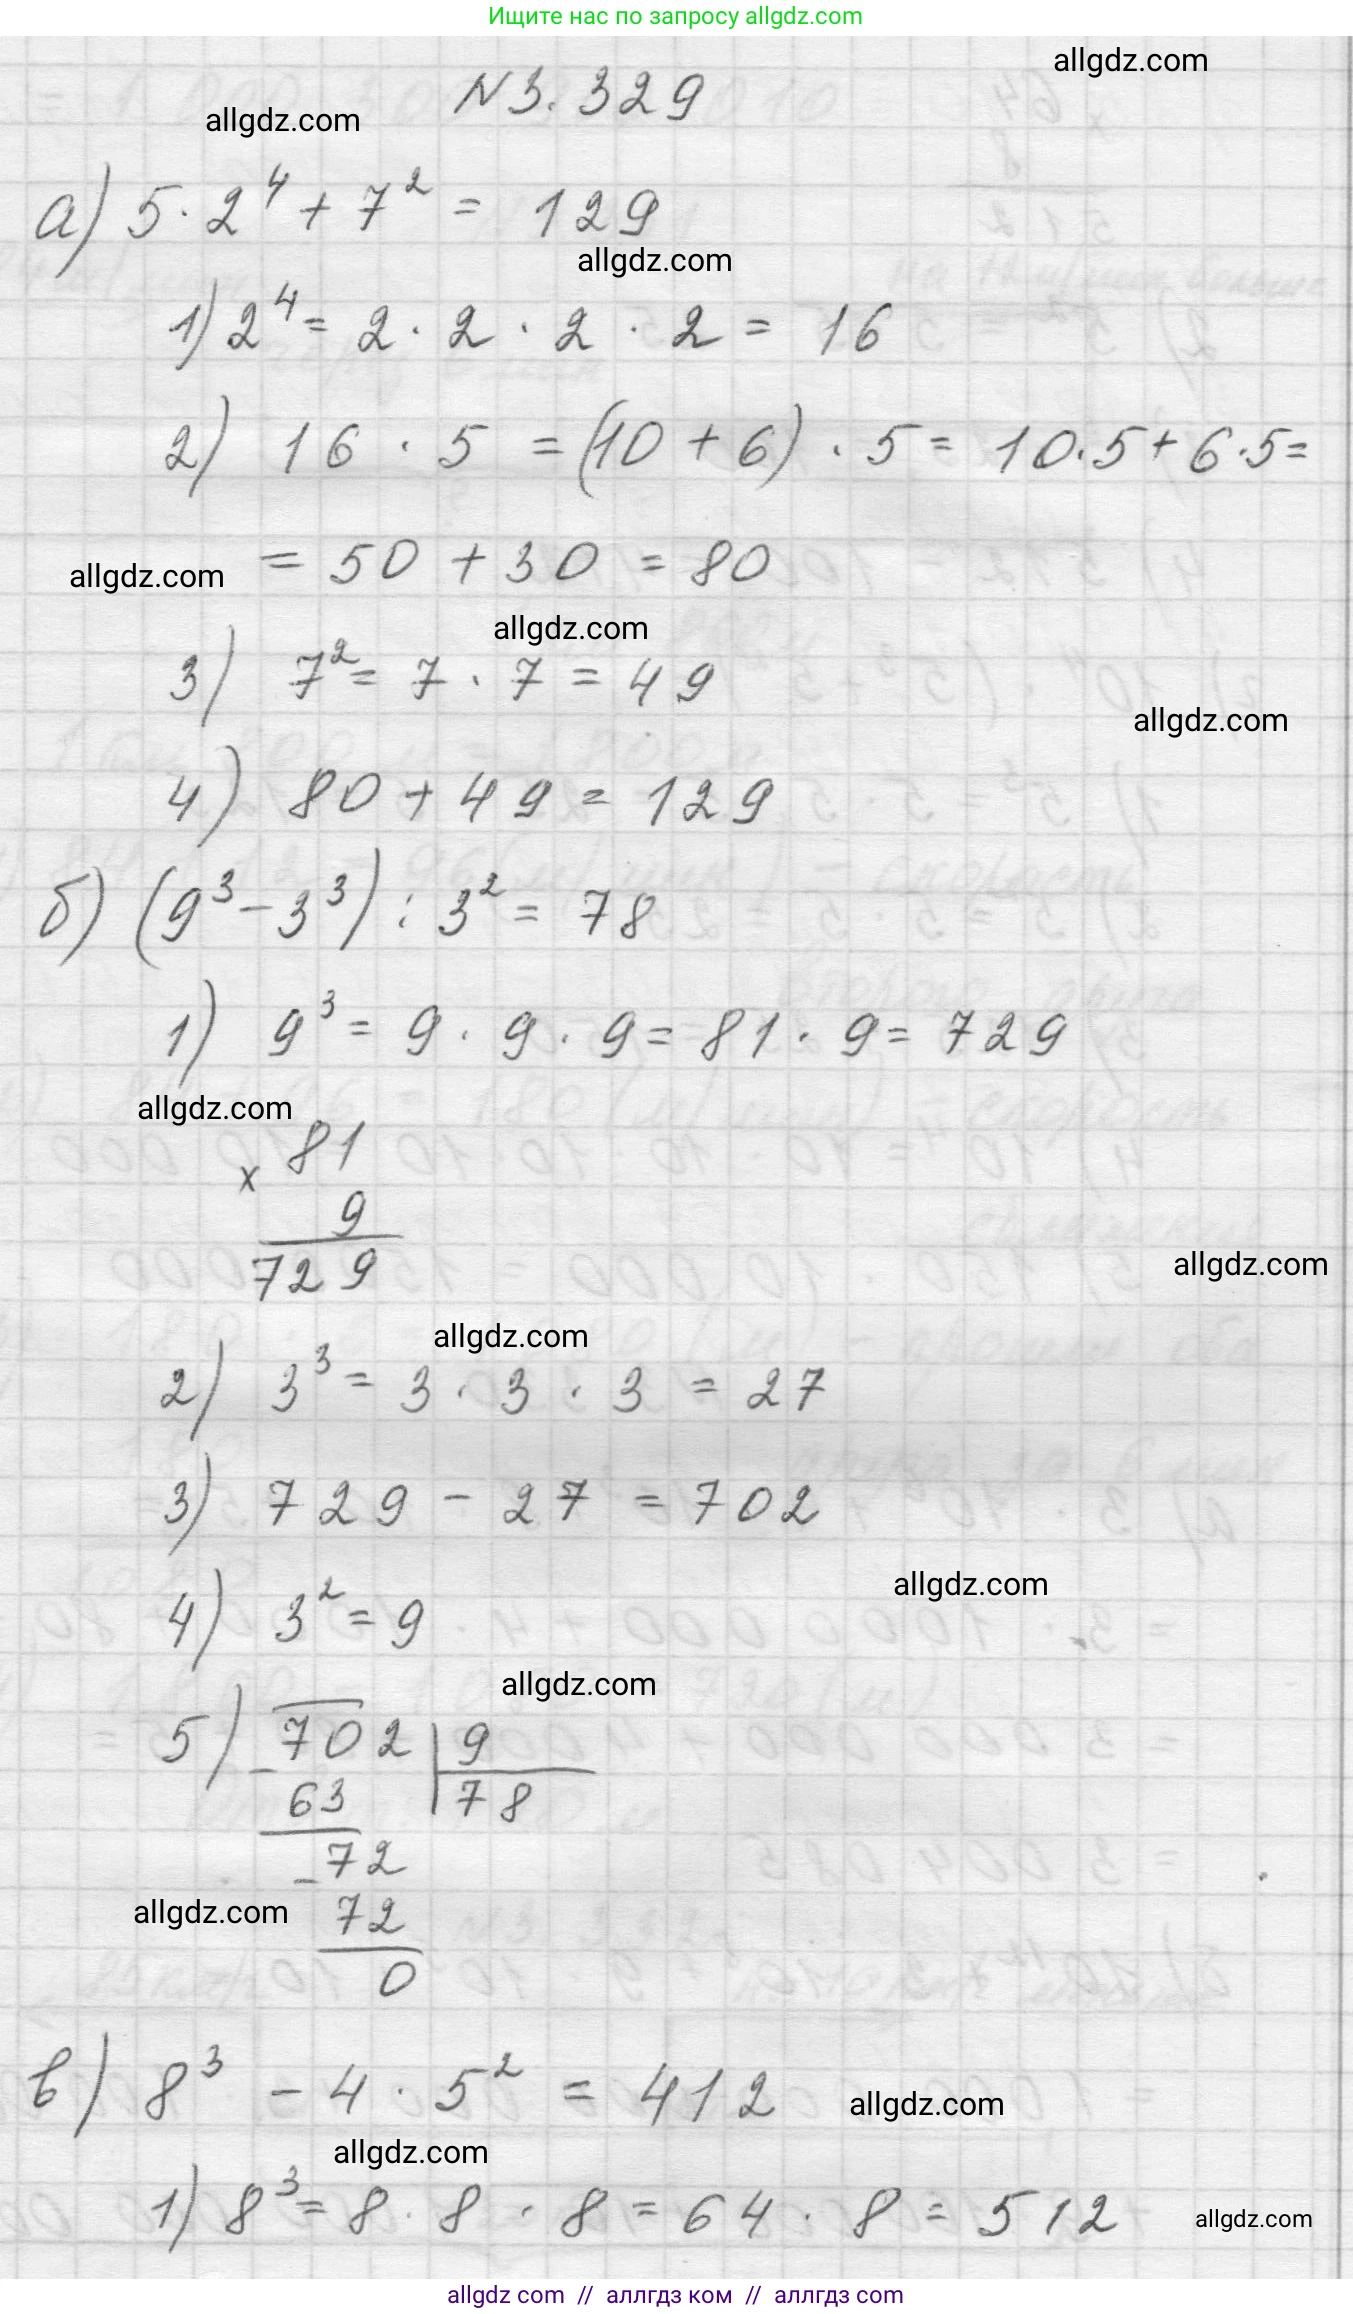 Ищите нас по запросу allgdz.com
allgdz.com
N 3.329
allgdz.com
а) 5·2⁴ + 7² = 129
allgdz.com
1) 2⁴ = 2 · 2 · 2 · 2 = 16
2) 16 · 5 = (10 + 6) · 5 = 10·5 + 6·5 =
= 50 + 30 = 80
allgdz.com
allgdz.com
3) 7² = 7 · 7 = 49
allgdz.com
4) 80 + 49 = 129
б) (9³ - 3³) : 3² = 78
1) 9³ = 9 · 9 · 9 = 81 · 9 = 729
allgdz.com
81
x
9
729
allgdz.com
allgdz.com
2) 3³ = 3 · 3 · 3 = 27
3) 729 - 27 = 702
allgdz.com
4) 3² = 9
allgdz.com
5) 702 | 9
- 63 | 78
- 72
allgdz.com
72
0
в) 8³ - 4 · 5² = 412
allgdz.com
allgdz.com
1) 8³ = 8 · 8 · 8 = 64 · 8 = 512
allgdz.com
allgdz com // аллгдз ком // аллгдз com